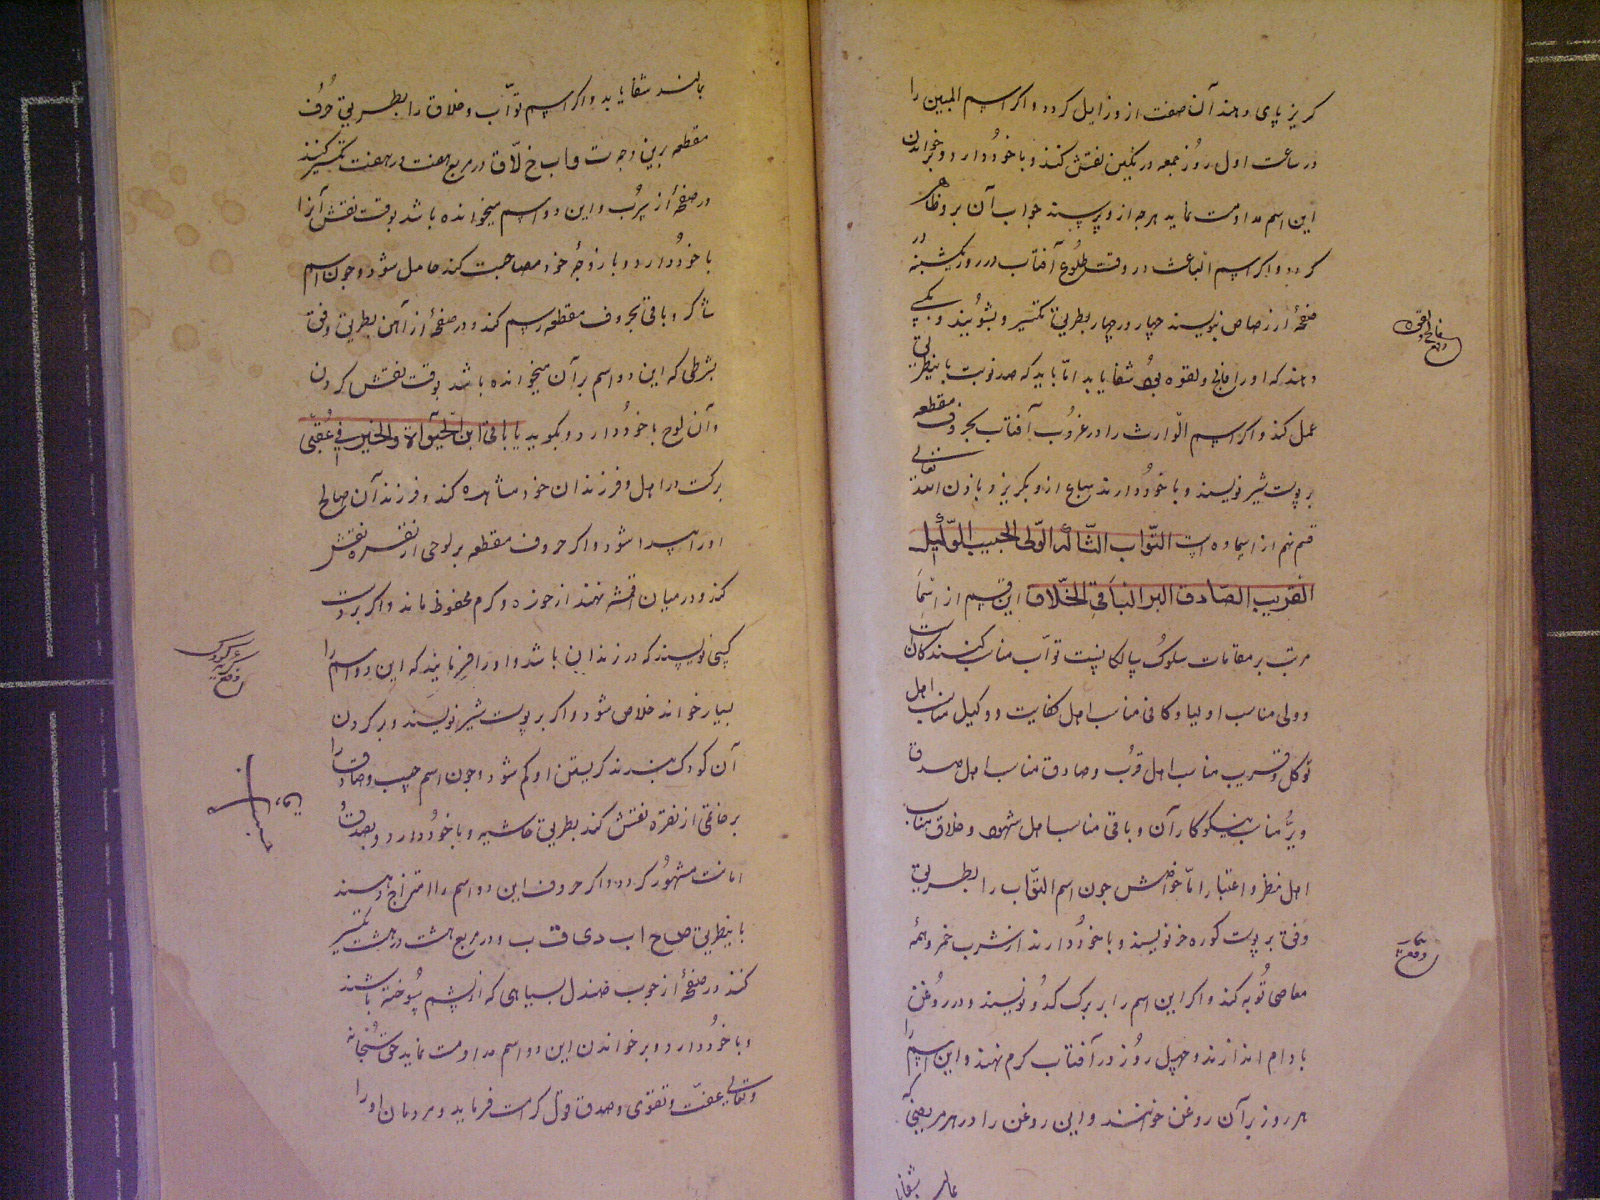 کریز پای دهند آن صفت ازو زایل کردد و اکر اسم المبین را
در ساعت اول روز جمعه در نکین نقش کنند و با خود دارد و بر خواندن
این اسم مداومت نماید هرچه از وی پرسند جواب آن برو ظاهر
کردد و اکر اسم الباعث در وقت طلوع آفتاب در روز یکشنبه در
صفحهٔ از رصاص نویسند چهار در چهار بطریق تکسیر و بشویند و بکسی
دهند که او را فالج و لقوه بود شفا یابد اما باید که صد نوبت باینطریق
عمل کند و اکر اسم الوارث را در غروب آفتاب بحروف مقطعه
بر پوست شیر نویسند و با خود دارند سباع ازو بکریزد باذن الله تعالی
قسم نهم از اسما ده است التواب الشاکر الولی الحبیب الوکیل
القریب الصادق البر الباقی الخلاق این قسم از اسما
مرتب بر مقامات سلوک سالکانست تواب مناسب کنندکانست
و ولی مناسب اولیا و کافی مناسب اهل کفایت و وکیل مناسب اهل
توکل و قریب مناسب اهل قرب و صادق مناسب اهل صدق
و بر مناسب نیکوکاران و باقی مناسب اهل شهود و خلاق مناسب
اهل نظر و اعتبار اما خواصش چون اسم التواب را بطریق
وفق بر پوست کوره خر نویسند و با خود دارند از شرب خمر و همهٔ
معاصی توبه کند و اکر این اسم را بر برک کدو نویسند و در روغن
بادام اندازند و چهل روز در آفتاب کرم نهند و این اسم را
هر روز بر آن روغن خوانند و این روغن را در هر مریضی که
بمالند شفا یابد و اکر اسم تواب و خلاق را بطریق حروف
مقطعه برین وجه ت و اب خ لاق در مربع هفت در هفت تکسیر کنند
در صفحهٔ از سرب و این دو اسم میخوانده باشد بوقت نقش آنرا
با خود دارد و با زوجهٔ خود مصاحبت کند حامل شود و چون اسم
شاکر و باقی بحروف مقطعه رسم کند و در صفحهٔ از آهن بطریق وفق
بشرطی که این دو اسم بر آن میخوانده باشد بوقت نقش کردن
و آن لوح با خود دارد و بکوید یا باقی ابن الحیوة و الخیر فی عقبی
برکت در اهل و فرزندان خود مشاهده کند و فرزند آن صالح
او را پیدا شود و اکر حروف مقطعه بر لوحی از نقره نقش
کند و در میان اقمشه نهند از موزه و کرم محفوظ ماند و اکر بر دست
کسی نویسند که در زندان باشد و او را فرمایند که این دو اسم را
بسیار خواند خلاص شود و اکر بر پوست شیر نویسند و بر کردن
آن کودک بندند کریستن او کم شود و چون اسم حبیب و صادق را
بر خاتمی از نقره نقش کند بطریق حاشیه و با خود دارد و بصدق
امانت مشهور کردد و اکر حروف این دو اسم را امتزاج دهند
باینطریق ص ح ا ب د ی ق ب و در مربع هشت در هشت تکسیر
کنند در صفحهٔ از چوب صندل بسیاهی که از پشم سوخته باشند
و با خود دارد و بر خواندن این دو اسم مداومت نماید حق سبحانه
و تعالی عفت و تقوی و صدق قول کرامت فرماید و مردمان او را